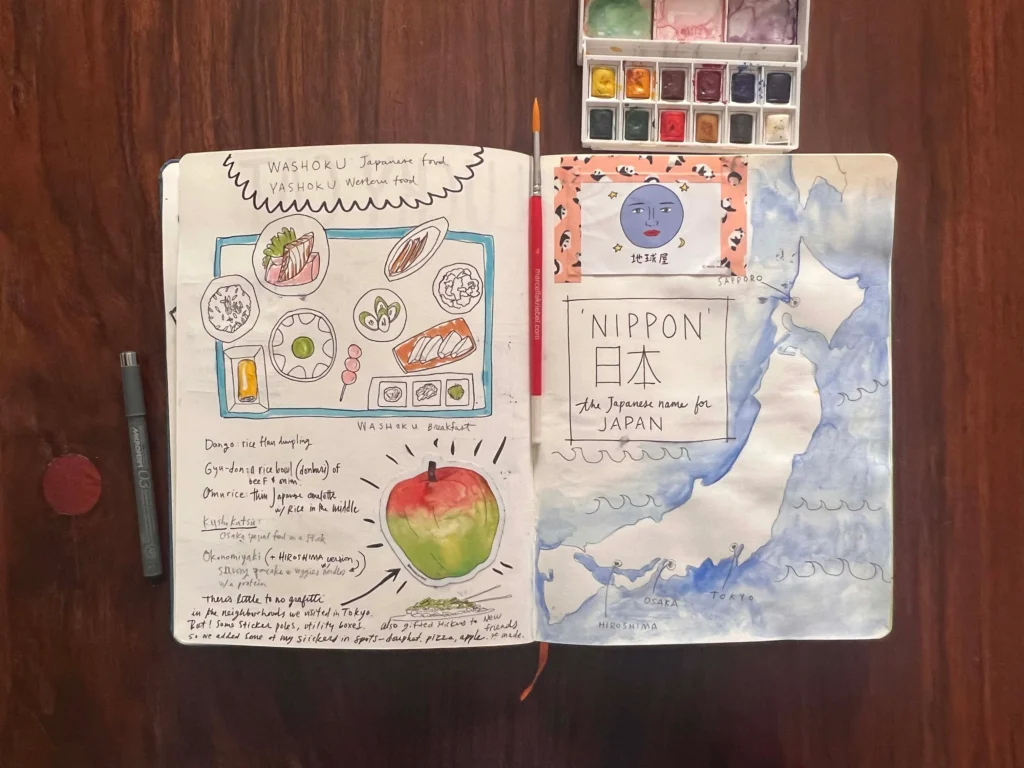 WASHOKU Japanese food
YASHOKU Western food
WASHOKU Breakfast
Dango: rice flour dumpling
Gyu-don: a rice bowl (donburi) of
beef & onion
Omurice: thin Japanese omelette
w/ Rice in the middle
Kushikatsu:
Osaka special food on a stick
Okonomiyaki (+ HIROSHIMA version)
Savory pancake w veggies noodles
w/ a protein
There's little to no graffiti
in the neighborhoods we visited in Tokyo.
But! Some sticker poles, utility boxes.
so we added some of my stickers in spots - doughnut, pizza, apple.
also gifted stickers to new
friends
we made.
marcellakriebel.com
地球屋
'NIPPON'
日本
the Japanese name for
JAPAN
SAPPORO
TOKYO
OSAKA
HIROSHIMA